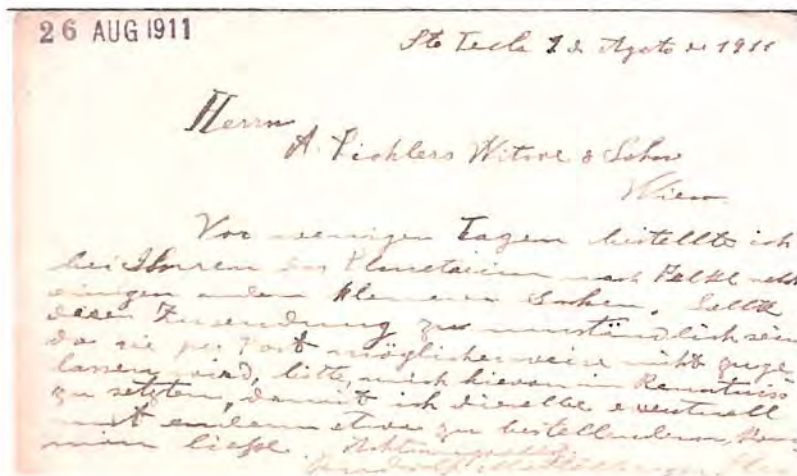 26 AUG 1911
Sta Tecla 2 de Agosto de 1911
Herrn
A. Pichlers Witwe & Sohn
Wien
Vor wenigen Tagen bestellte ich
bei Ihnen das Planetarium nach Felkl nebst
einigen andern kleineren Sachen. Sollte
diese Zusendung zu umständlich sein
da sie per Post möglicherweise nicht zuge
lassen wird, bitte, mich hievon in Kenntniss
zu setzten, damit ich dieselbe eventuell
mit andern etwa zu bestellenderen
liesse. Achtungsvollst